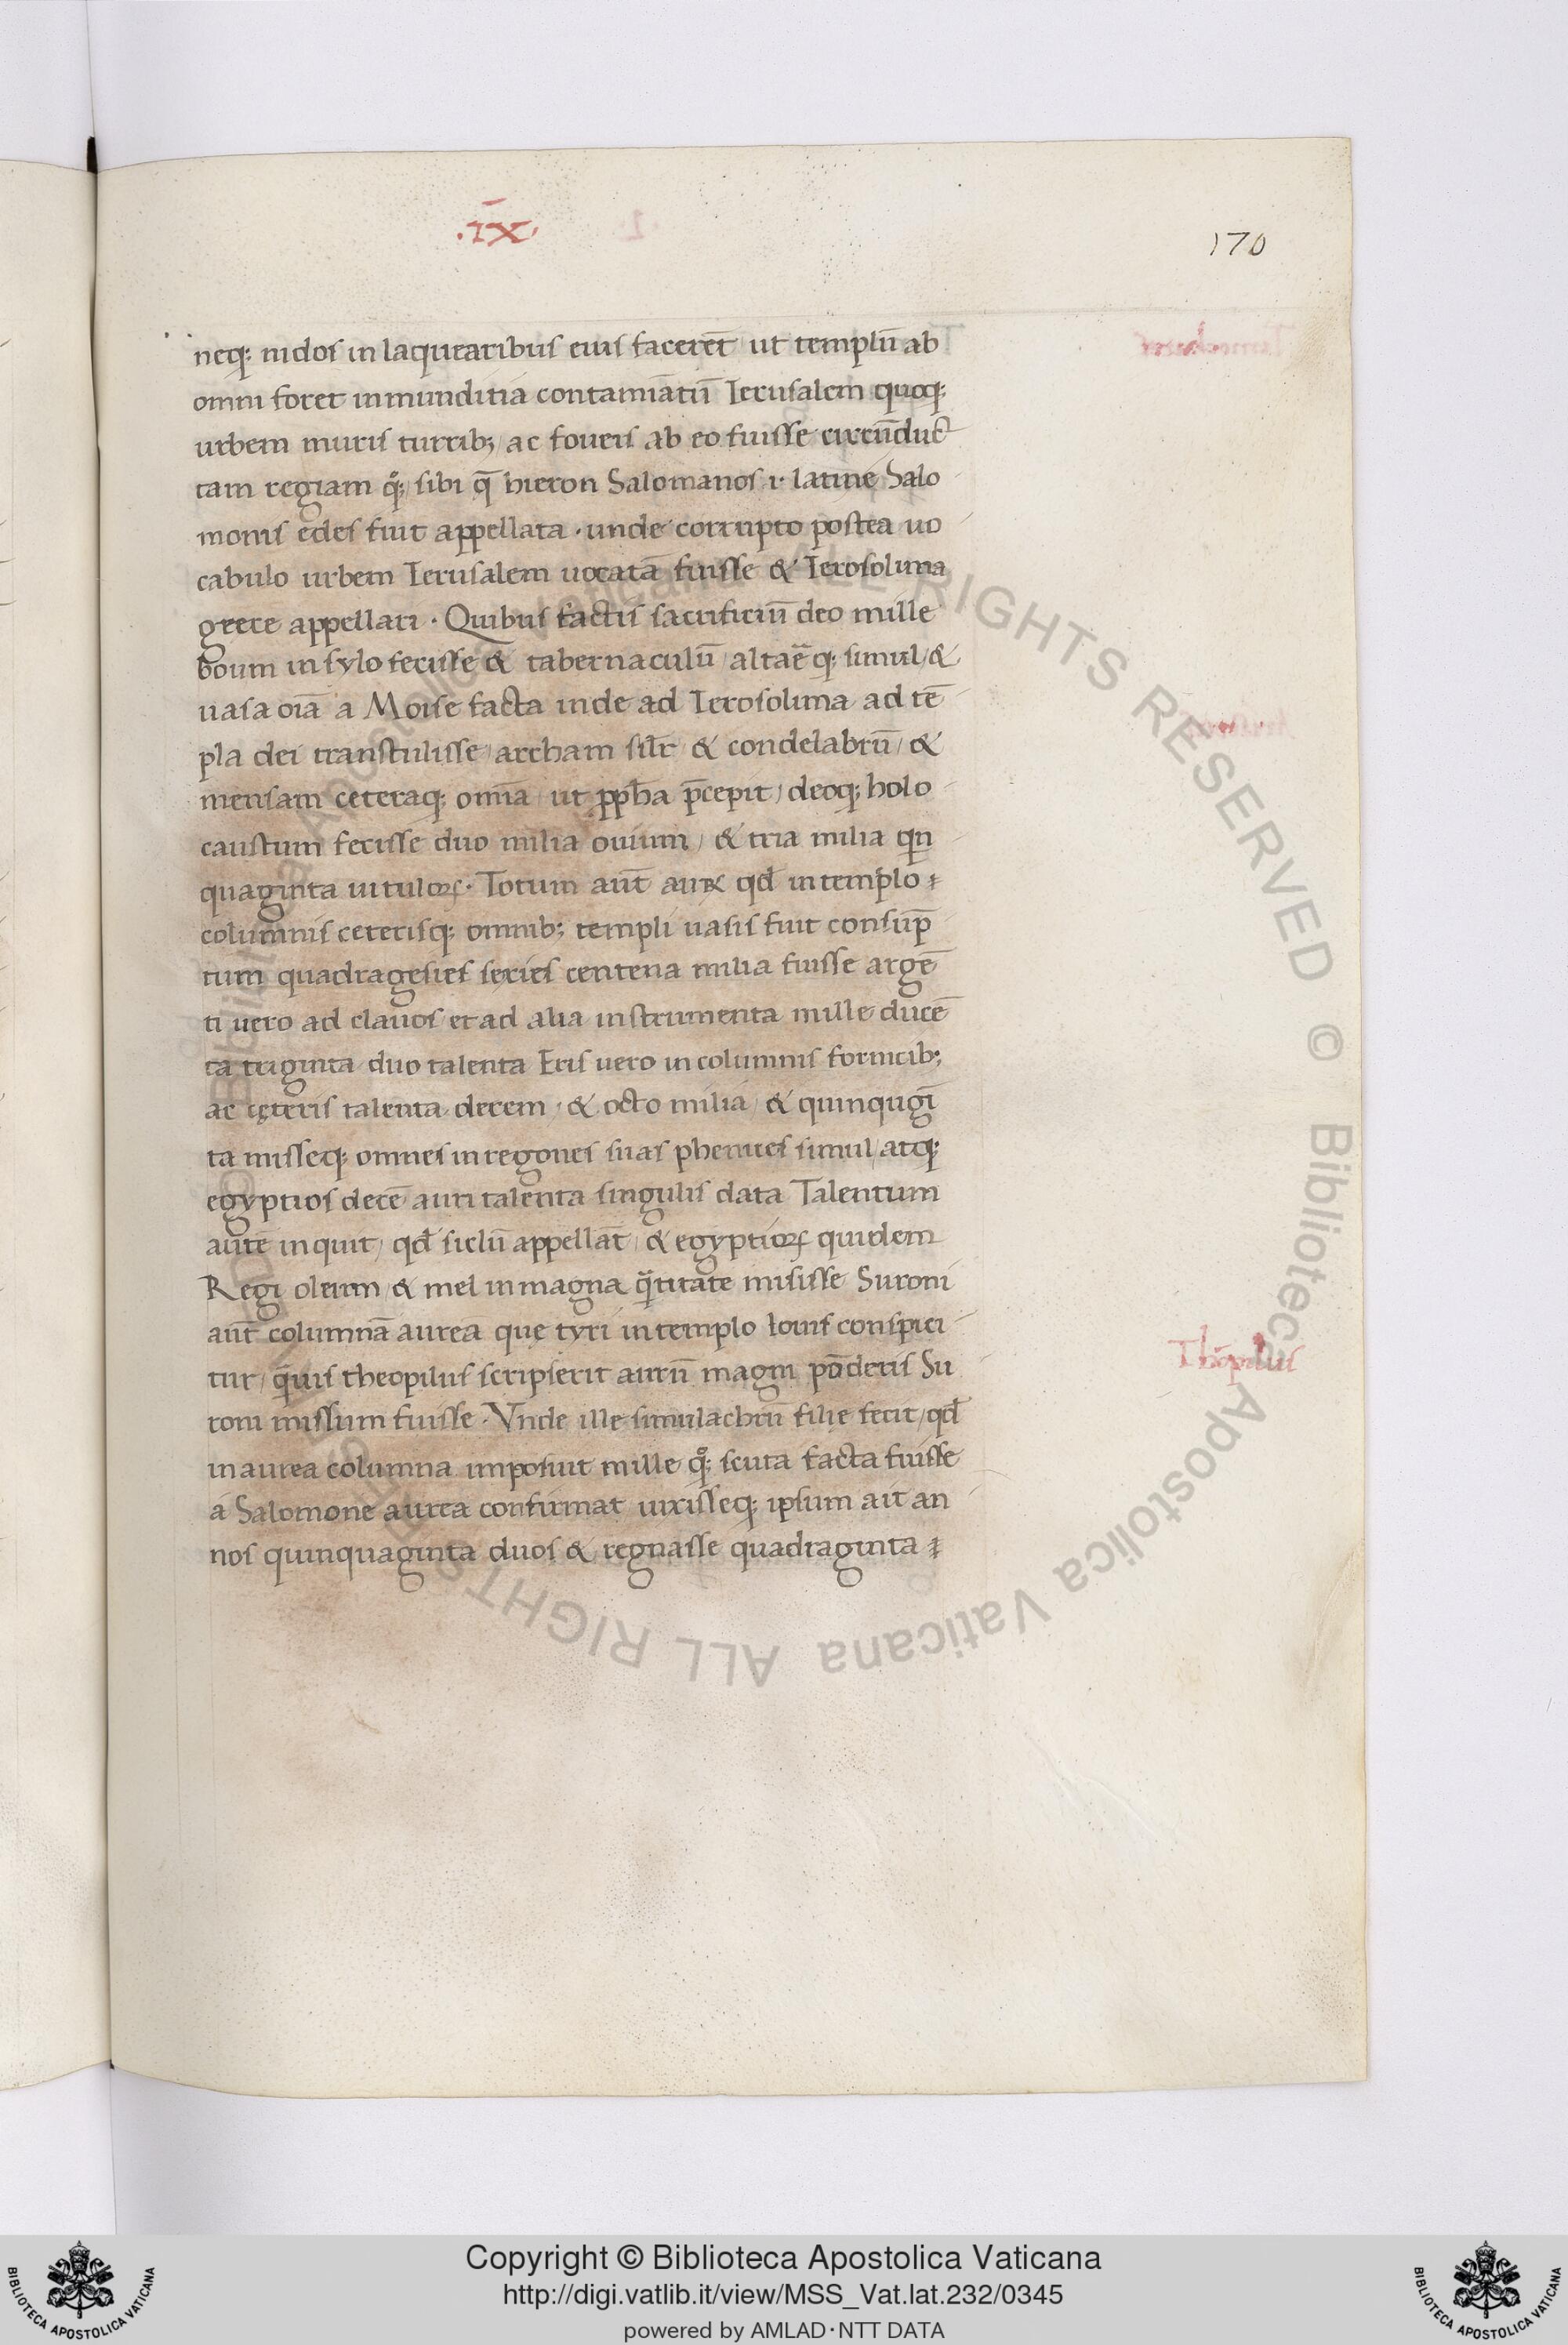 .IX̄.
170
neq; nidos in laquearibus eius facerēt ut templū ab
omni foret inmunditia contamiātū Ierusalem quoq;
urbem muris turrib; ac foueis ab eo fuisse circūduc
tam regiam q̊; sibi q̄ hieron Salomanos .i. latine Salo
monis edes fuit appellata . unde corrupto postea uo
cabulo urbem Ierusalem uocatā fuisse & Ierosolima
grece appellari . Quibus factis sacrificiū deo mille
boum in sylo fecisse & tabernaculū altaē q; simul &
uasa oīa a Moise facta inde ad Ierosolima ad tē
pla dei transtulisse archam silr̄ & condelabrū / &
mensam ceteraq; omīa ut ꝓpħa p̄cepit / deoq; holo
caustum fecisse duo milia ouium / & tria milia qn
quaginta uitulorꝝ . Totum aūt auꝝ qđ in templo ⁊
columnis ceterisq; omnib; templi uasis fuit consūp
tum quadragesies sexies centena milia fuisse argē
ti uero ad clauos et ad alia instrumenta mille ducē
ta triginta duo talenta Eris uero in columnis fornicib;
ac ceteris talenta decem . & octo milia / & quinqugī
ta missēq; omnes in regones suas phenices simul / atq;
egyptios decē auri talenta singulis data Talentum
autē inquit / qđ siclū appellāt / & egyptiorꝝ quidem
Regi oleum & mel in magna q̄titate misisse Suroni
aūt columnā aurea quę tyri in templo Iouis conspici
tur / q̄uis theopilus scripserit aurū magni pōderis Su
roni missum fuisse . Vnde ille simulachrū filię fecit / qđ
in aurea columna imposuit mille q̊; scuta facta fuisse
a Salomone aurea confirmat uixisseq; ipsum ait an
nos quinquaginta duos & regnasse quadraginta ⁊
Theopilus
Copyright © Biblioteca Apostolica Vaticana
http://digi.vatlib.it/view/MSS_Vat.lat.232/0345
powered by AMLAD·NTT DATA